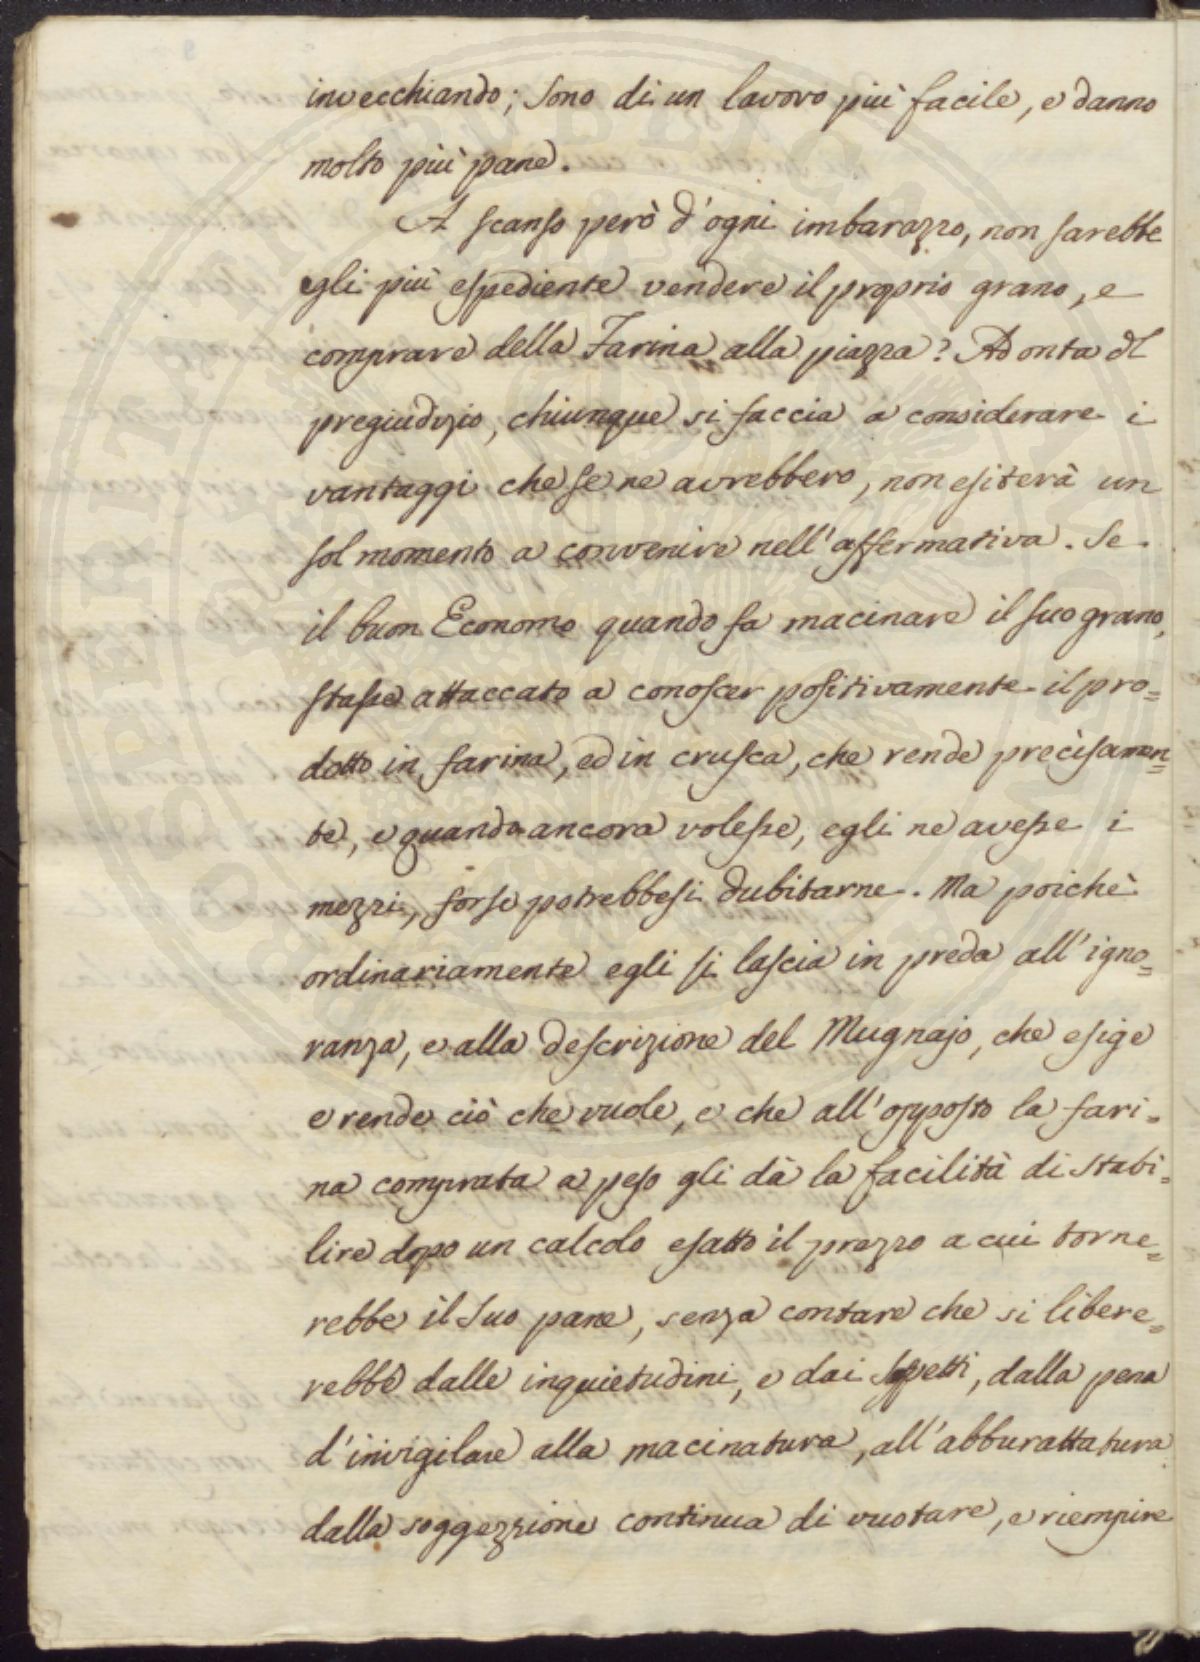 invecchiando; sono di un lavoro più facile, e danno
molto più pane.
A scanso però d'ogni imbarazzo, non sarebbe
egli più espediente vendere il proprio grano, e
comprare della Farina alla piazza? Ad onta dl
pregiudizio, chiunque si faccia a considerare i
vantaggi che se ne avrebbero, non esiterà un
sol momento a convenire nell'affermativa. Se
il buon Economo quando fa macinare il suo grano,
stasse attaccato a conoscer positivamente il pro=
dotto in farina, ed in crusca, che rende precisamen=
te, e quando ancora volesse, egli ne avesse i
mezzi, forse potrebbesi dubitarne. Ma poichè
ordinariamente egli si lascia in preda all'igno=
ranza, e alla descrizione del Mugnajo, che esige
e rende ciò che vuole, e che all'opposto la fari=
na comprata a peso gli dà la facilità di stabi=
lire dopo un calcolo esatto il prezzo a cui torne=
rebbe il suo pane, senza contare che si libere=
rebbe dalle inquietudini, e dai sospetti, dalla pena
d'invigilare alla macinatura, all'abburattatura
dalla soggezzione continua di vuotare, e riempire
PROSPERITATI PUBLICAE AVGENDAE